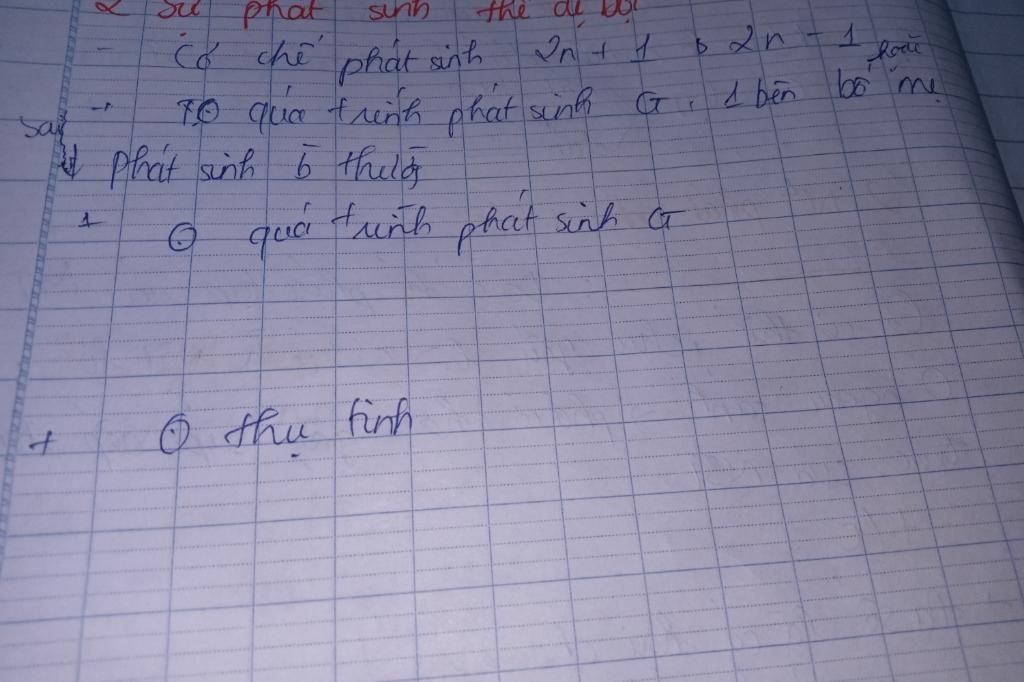 2 Sự phát sinh thể dị bội
- Cơ chế phát sinh 2n + 1 & 2n - 1
+ quá trình phát sinh G, 1 bên bố mẹ hoặc
phát sinh b thường
+ quá trình phát sinh G
+ thụ tinh